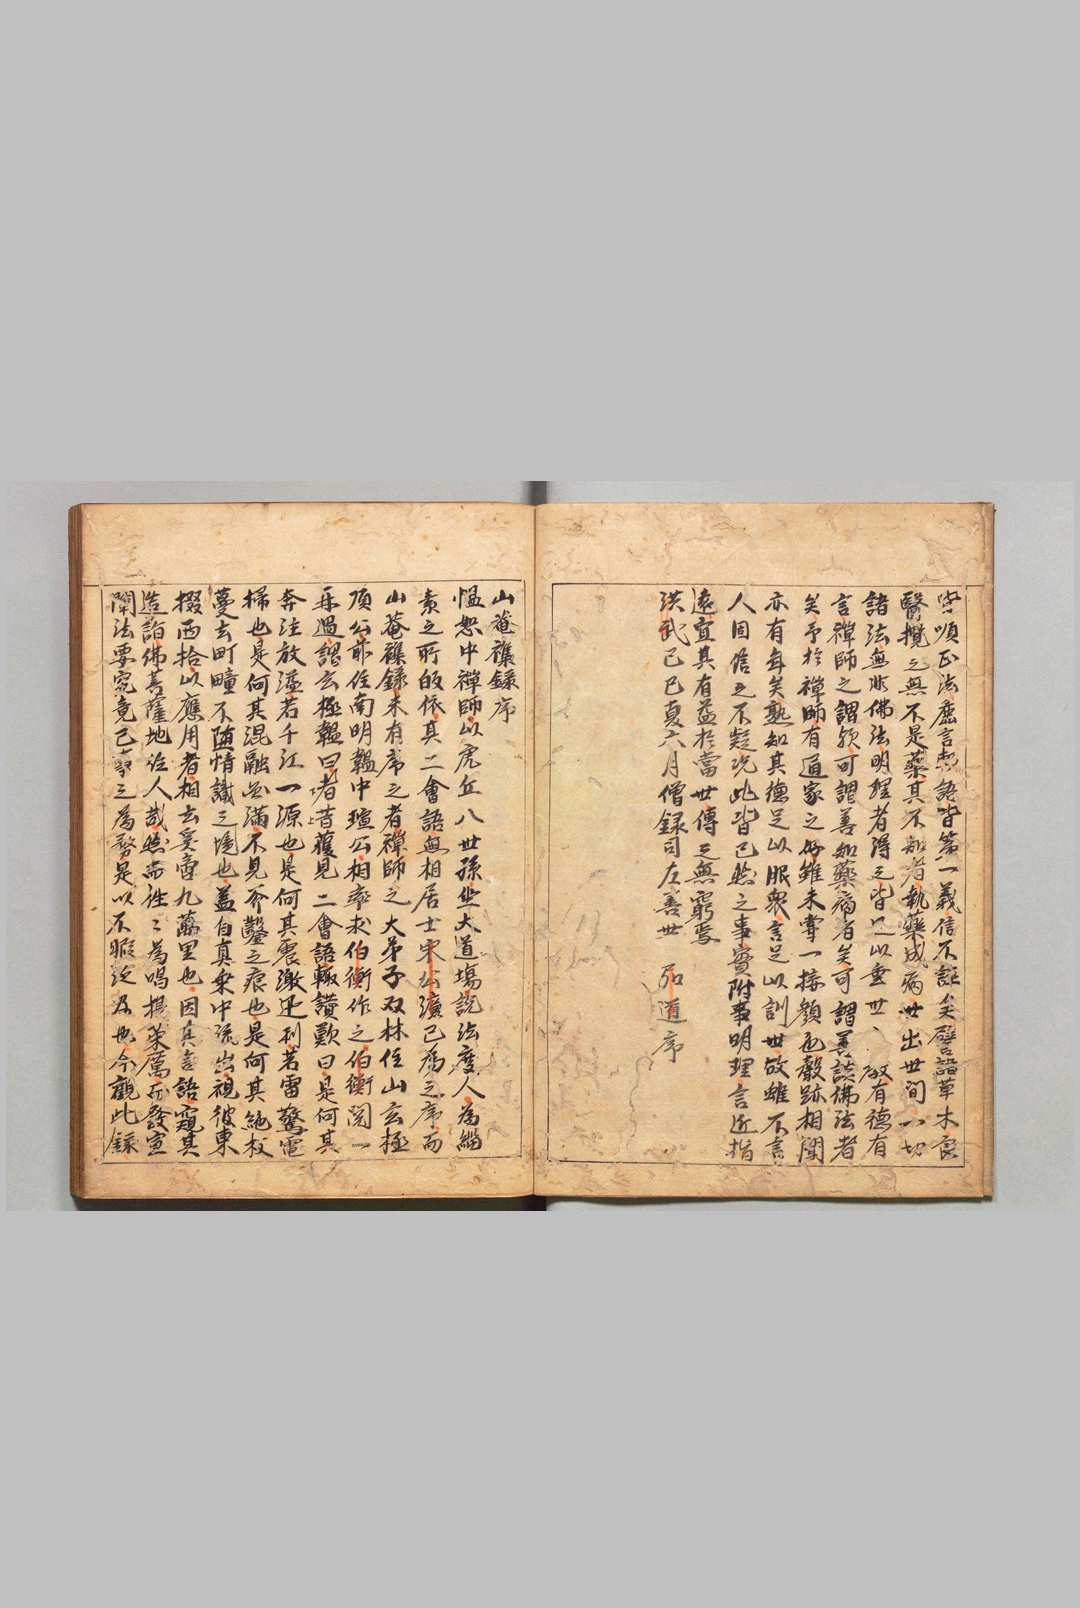 皆順正法麁言軟語皆第一義信不誣矣譬諸草木良
醫攬之無不是藥其不知者執藥成病世出世間一切
諸法無非佛法明理者得之皆足以垂世 故有德有
言禪師之謂歟可謂善知藥病者矣可謂善談佛法者
矣予於禪師有通家之好雖未嘗一接顏色聲跡相聞
亦有年矣熟知其德足以服衆言足以訓世故雖不言
人固信之不疑況此皆已然之事實附事明理言近指
遠宜其有益於當世傳之無窮焉
洪武己巳夏六月僧錄司左善世 弘道序
山菴襍錄序
慍恕中禪師以虎丘八世孫坐大道場説法度人為緇
素之所的依其二會語無相居士宋公濂已為之序而
山菴襍錄未有序之者禪師之大弟子双林住山玄極
頂公前住南明韞中瑄公相率求伯衡作之伯衡閲一
再過謂玄極韞曰者昔獲見二會語輙讚歎曰是何其
奔注放溢若千江一源也是何其震激迅利若雷驚電
掃也是何其混融無滿不見斧鑿之痕也是何其絶杈
蔓去町畦不墮情識之境也盖自真乗中流出視彼東
掇西拾以應用者相去奚啻九萬里也因其言語窺其
造詣佛菩薩地位人哉然而往々為唱揚策厲而發宣
闡法要究竟己事之為務是以不暇泛及也今觀此錄